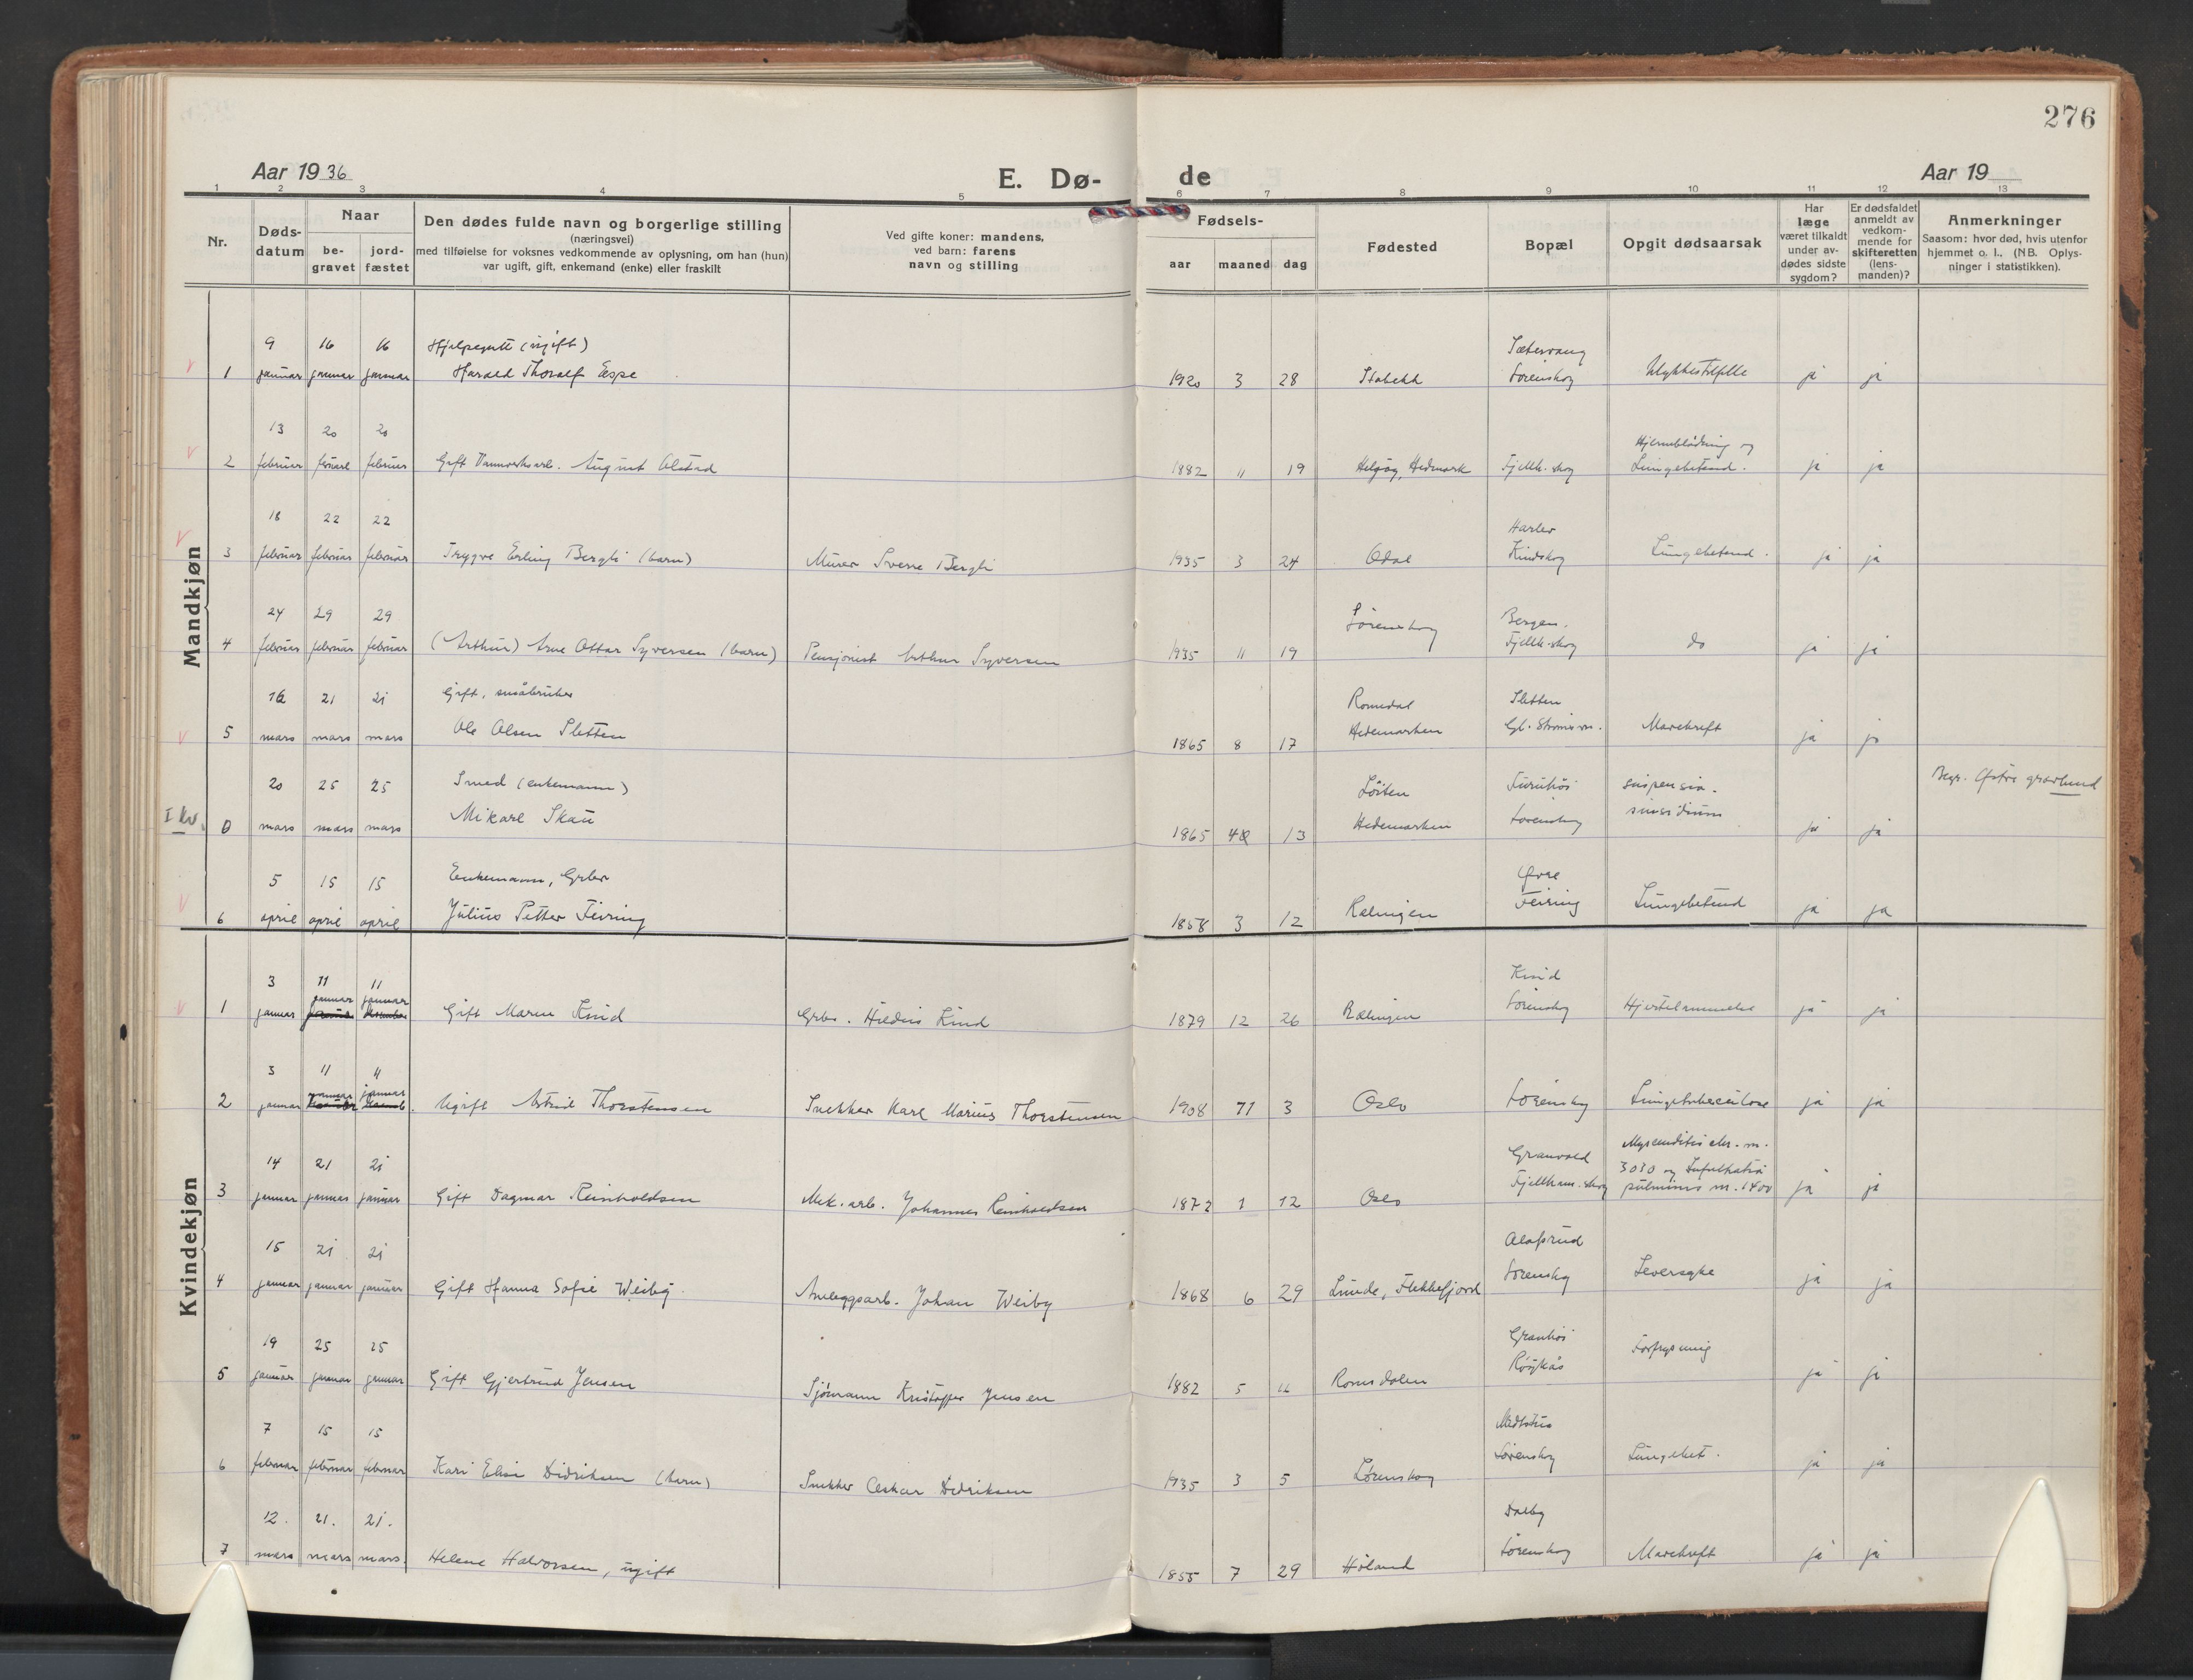 276
Aar 1936
E. Dø-
de
Aar 19
1 2 3 4 5 6 7 8 9 10 11 12 13
Nr.
Døds-
datum
Naar
be-
gravet
jord-
fæstet
Den dødes fulde navn og borgerlige stilling
(næringsvei)
med tilføielse for voksnes vedkommende av oplysning, om han (hun)
var ugift, gift, enkemand (enke) eller fraskilt
Ved gifte koner: mandens,
ved barn: farens
navn og stilling
Fødsels-
aar maaned dag
Fødested
Bopæl
Opgit dødsaarsak
Har
læge
været tilkaldt
under av-
dødes sidste
sygdom?
Er dødsfaldet
anmeldt av
vedkom-
mende for
skifteretten
(lens-
manden)?
Anmerkninger
Saasom: hvor død, hvis utenfor
hjemmet o. l., (NB. Oplys-
ninger i statistikken).
Mandkjøn
9 16 16 Hjelpegutt (ugift)
1 januar januar januar Harald Thoralf Espe 1920 3 28 Stabekk Lørenskog Ulykkestilfelle ja ja
13 20 20 Hjerneblødning og
2 februar februar Gift August Alstad 1882 11 19 Helgøy, Hedmark Fjellh. skog Lungebetend. ja ja
18 22 22
3 februar februar februar Trygve Erling Bergli (barn) Murer Sverre Bergli 1935 3 24 Odal Kindskog Lungebetend. ja ja
24 29 29 Lørenskog Bergen.
4 februar februar februar (Arthur) Arne Ottar Syversen (barn) Pensjonist Arthur Syversen 1935 11 19 Fjellh. skog do ja ja
16 21 21 Gift, småbruker Romedal Sletten
5 mars mars mars Ole Olsen Sletten 1865 8 17 Hedemarken Gl. Strømsvn. Mavekreft ja ja
20 25 25 Smed (enkemann) Løiten Furuhöi suspensio- Begr. Østre gravlund
I kv. 0 mars mars mars Mikael Skau 1865 4 13 Hedemarken Lørenskog ja ja
5 15 15 Enkemann, Grbr Øvre
6 april april april Julius Petter Feiring 1858 3 12 Rælingen Feiring Lungebetend ja ja
Kvindekjøn
3 11 11 Knid
1 januar januar januar Gift Maren Knid Grbr. Hildus Kind 1879 12 26 Rælingen Lørenskog Hjertelammelse ja ja
3 11 11
2 januar januar januar Ugift Astrid Thorstensen Snekker Karl Marius Thorstensen 1908 11 3 Oslo Lørenskog Lungetuberculose ja ja
14 21 21 Granvold Myocarditis chr. m.
3030 og Infiltratio
3 januar januar januar Gift Dagmar Reinholdsen Mek. arb. Johannes Reinholdsen 1872 1 12 Oslo Fjellham. skog pulmonis m. 1400 ja ja
15 21 21
4 januar januar januar Gift Hanna Sofie Weiby Anleggsarb. Johan Weiby 1868 6 29 Lunde, Flekkefjord Lørenskog Leversyke ja ja
19 25 25 Granhöi Forfrysning
5 januar januar januar Gift Gjertrud Jensen Sjømann Kristoffer Jensen 1882 5 11 Romsdalen Røykås ja ja
7 15 15
6 februar februar februar Kari Elise Didriksen (barn) Snekker Oskar Didriksen 1935 3 5 Lørenskog Lørenskog Lungebet. ja ja
12. 21. 21. Dalby
7 mars mars mars. Helene Halvorsen, ugift 1855 7 29 Höland Lørenskog Mavekreft ja ja